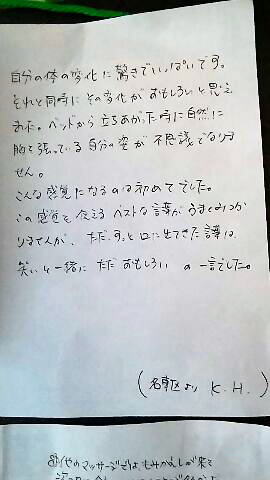 自分の体の変化に驚きでいっぱいです。
それと同時にその変化がおもしろいと思え
ました。ベッドから立ちあがった時に自然に
胸を張っている自分の姿が不思議でなりま
せん。
こんな感覚になるのは初めてでした。
この感覚を伝えるベストな言葉がうまくみつか
りませんが、ただ、すっと口に出てきた言葉は、
笑いと一緒にただおもしろい の一言でした。
(名東区より K.H.)
やのマッサージでは、もみかえしが来て